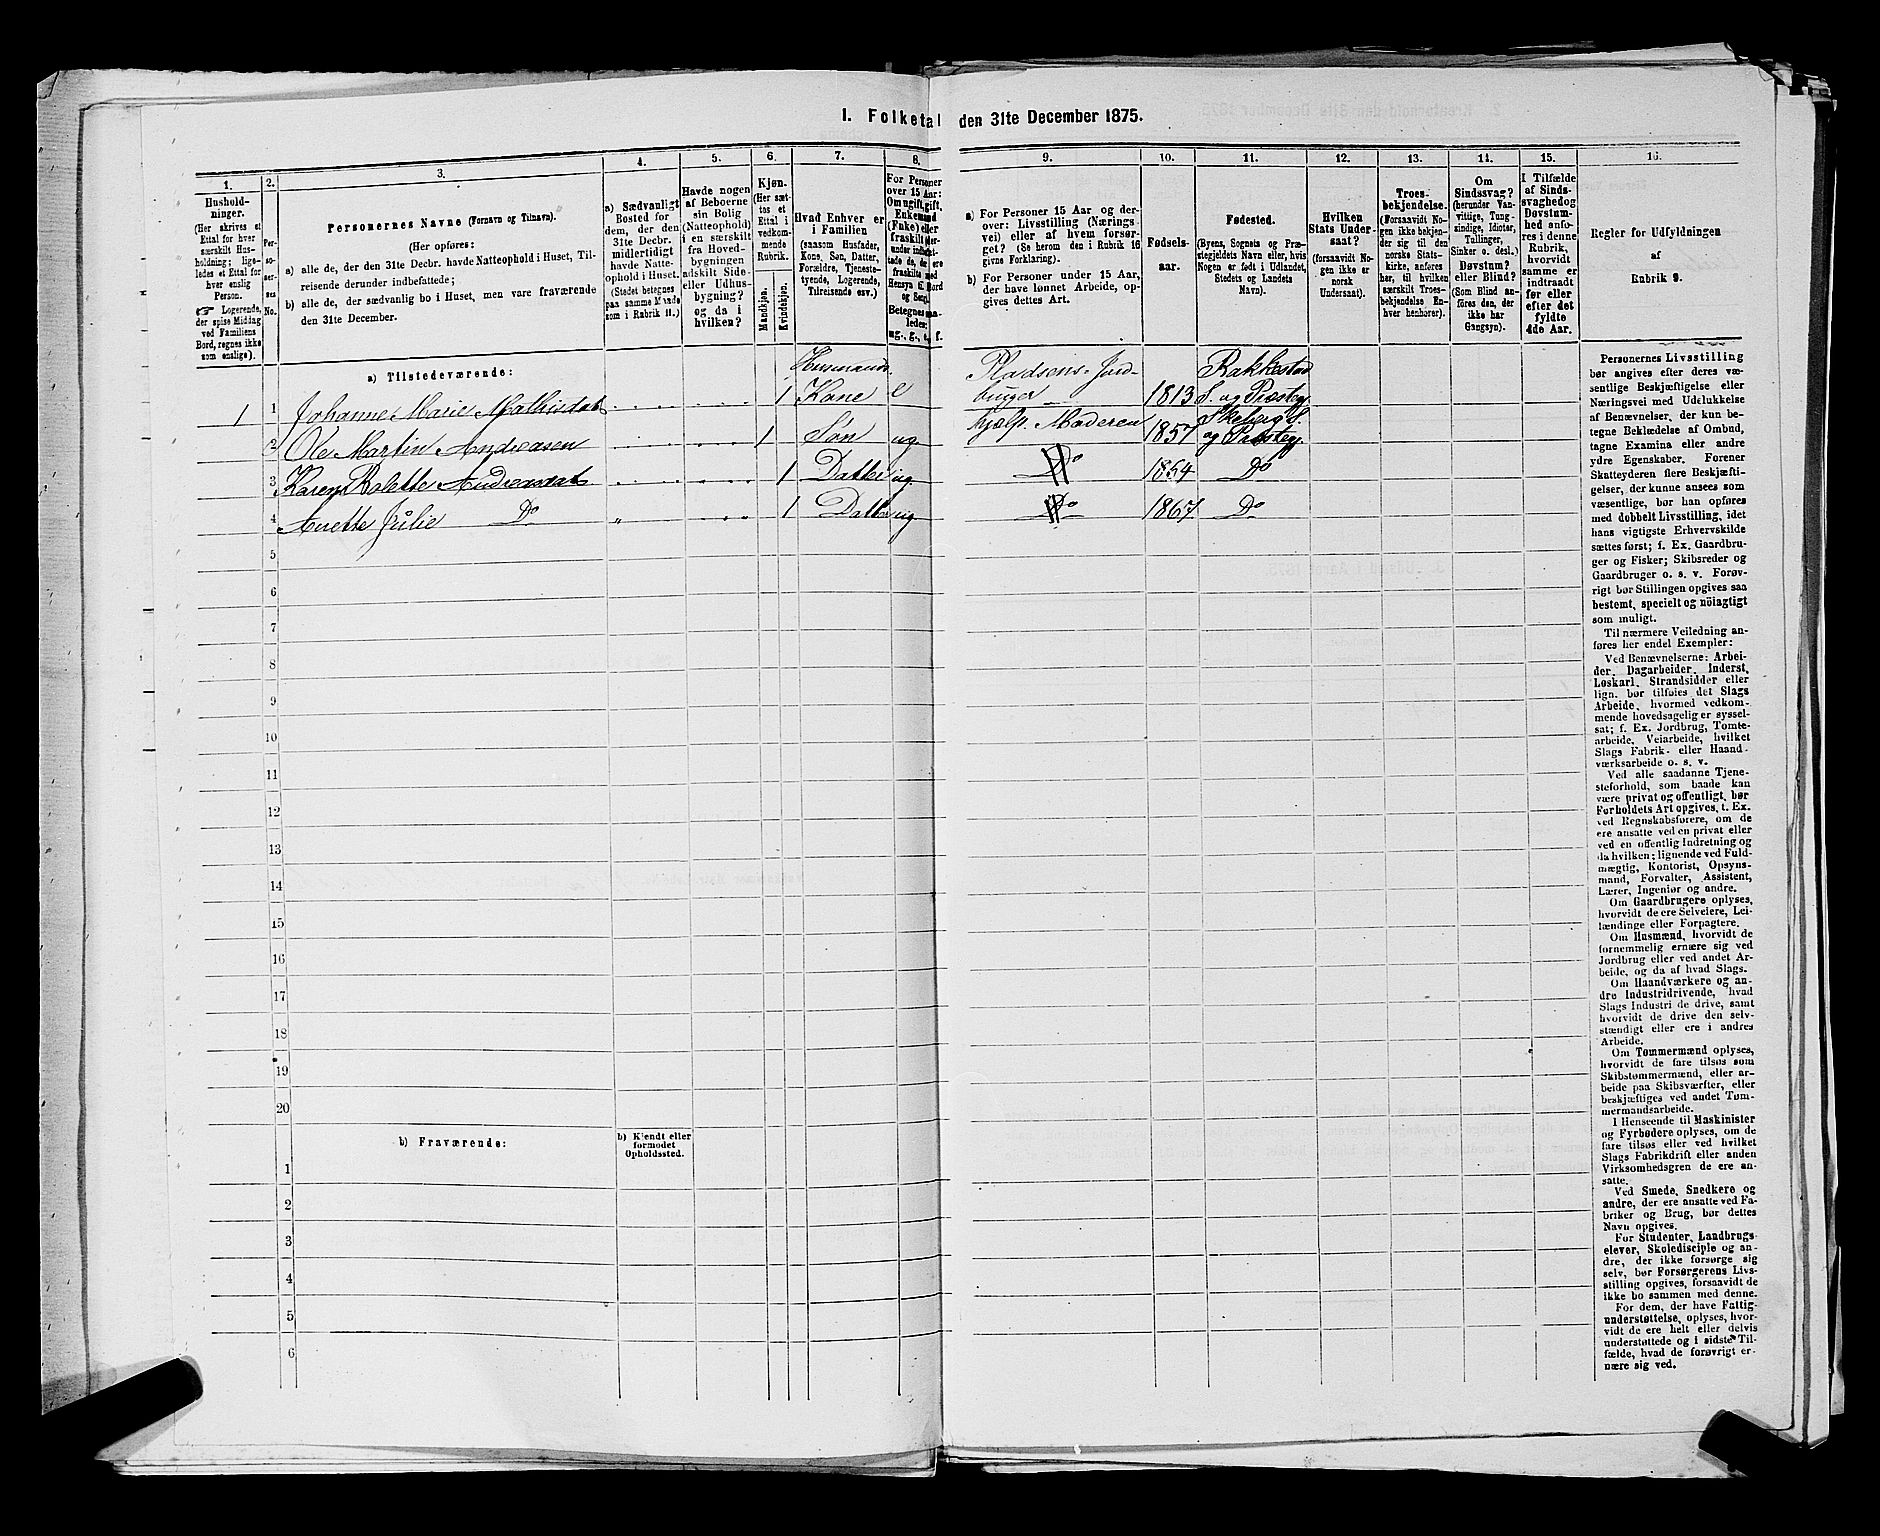 I. Folketal den 31te December 1875.
1.
2.
3.
4.
5.
6.
7.
8.
9.
10.
11.
12.
13.
14.
15.
16.
Hushold-
ninger.
(Her skrives et
Ettal for hver
særskilt Hus-
holdning; lige-
ledes et Ettal for
hver enslig
Person.
☞ Logerende,
der spise Middag
ved Familiens
Bord, regnes ikke
som enslige).
Per-
so-
ner-
nes
No.
Personernes Navne (Fornavn og Tilnavn).
(Her opføres:
a) alle de, der den 31te Decbr. havde Natteophold i Huset, Til-
reisende derunder indbefattede;
b) alle de, der sædvanlig bo i Huset, men vare fraværende
den 31te December.
a) Sædvanligt
Bosted for
dem, der den
31te Decbr.
midlertidigt
havde Natte-
ophold i Huset.
(Stedet betegnes
paa samme Maade
som i Rubrik 11.)
Havde nogen
af Beboerne
sin Bolig
(Natteophold)
i en særskilt
fra Hoved-
bygningen
adskilt Side-
eller Udhus-
bygning?
og da i
hvilken?
Kjøn.
(Her sæt-
tes et
Ettal i
vedkom-
mende
Rubrik.
Mandkjøn.
Kvindekjøn.
Hvad Enhver er
i Familien
(saasom Husfader,
Kone, Søn, Datter,
Forældre, Tjeneste-
tyende, Logerende,
Tilreisende osv.)
For Personer
over 15 Aar:
Om ugift, gift,
Enkemand
(Enke) eller
fraskilt
Betegnes
saaledes:
ug., g., e., f.
a) For Personer 15 Aar og der-
over: Livsstilling (Nærings-
vei) eller af hvem forsør-
get? (Se herom den i Rubrik 16
givne Forklaring).
b) For Personer under 15 Aar,
der have lønnet Arbeide, op-
gives dettes Art.
Fødsels-
aar.
Fødested.
(Byens, Sognets og Præ-
stegjeldets Navn eller, hvis
Nogen er født i Udlandet,
Stedets og Landets
Navn).
Hvilken
Stats Under-
saat?
(forsaavidt No-
gen ikke er
norsk
Undersaat).
Troes-
bekjendelse.
(Forsaavidt No-
gen ikke bekjen-
der sig til den
norske Stats-
kirke, anføres
her, til hvilken
særskilt Troes-
bekjendelse En-
hver henhører).
Om
Sindssvag?
(herunder Van-
vittige, Tung-
sindige, Idioter,
Tullinger,
Sinker o. desl.)
Døvstum?
eller Blind?
(Som Blind an-
føres den, der
ikke har
Gangsyn).
I Tilfælde
af Sinds-
svaghed og
Døvstum-
hed anfø-
res i denne
Rubrik,
hvorvidt
samme er
indtraadt
før eller
efter det
fyldte
4de Aar.
Regler for Udfyldningen
af
Rubrik 9.
a) Tilstedeværende:
1 1 Johanne Marie Mathisdat 1 Husmands Kone e Pladsens Jord-bruger 1813 Rakkestad S. og Præsteg
2 Ole Martin Andreasen 1 Søn ug hjælp. Moderen 1857 Skeberg S. og Præsteg.
3 Karen Andreasdat 1 Datter ug Do 1854 Do
4 Anette Julie Do „ 1 Datter ug Do 1867 Do
5
6
7
8
9
10
11
12
13
14
15
16
17
18
19
20
b) Fraværende:
b) Kjendt eller
formodet
Opholdssted.
1
2
3
4
5
6
Personernes Livsstilling
bør angives efter deres væ-
sentlige Beskjæftigelse eller
Næringsvei med Udelukkelse
af Benævnelser, der kun be-
tegne Beklædelse af Ombud,
tagne Examina eller andre
ydre Egenskaber. Forener
Skatteyderen flere Beskjæfti-
gelser, der kunne ansees som
væsentlige, bør han opføres
med dobbelt Livsstilling, idet
hans vigtigste Erhvervskilde
sættes først; f. Ex. Gaardbru-
ger og Fisker; Skibsreder og
Gaardbruger o. s. v. Forøv-
rigt bør Stillingen opgives saa
bestemt, specielt og nøiagtigt
som muligt.
Til nærmere Veiledning an-
føres her endel Exempler:
Ved Benævnelserne: Arbei-
der, Dagarbeider, Inderst,
Løskarl, Strandsidder eller
lign. bør tilføies det Slags
Arbeide, hvormed vedkom-
mende hovedsagelig er syssel-
sat; f. Ex. Jordbrug, Tomte-
arbeide, Veiarbeide, hvilket
Slags Fabrik- eller Haand-
værksarbeide o. s. v.
Ved alle saadanne Tjene-
steforhold, som baade kan
være privat og offentligt, bør
Forholdets Art opgives, t. Ex.
ved Regnskabsførere, om de
ere ansatte ved en privat eller
ved en offentlig Indretning og
da hvilken; lignende ved Fuld-
mægtig, Kontorist, Opsyns-
mand, Forvalter, Assistent,
Lærer, Ingeniør og andre.
Om Gaardbrugere oplyses,
hvorvidt de ere Selveiere, Lei-
lændinge eller Forpagtere.
Om Husmænd, hvorvidt de
fornemmelig ernære sig ved
Jordbrug eller ved andet Ar-
beide, og da af hvad Slags.
Om Haandværkere og an-
dre Industridrivende, hvad
Slags Industri de drive, samt
hvorvidt de drive den selv-
stændigt eller ere i andres
Arbeide.
Om Tømmermænd oplyses,
hvorvidt de fare tilsøs som
Skibstømmermænd, eller ar-
beide paa Skibsværfter, eller
beskjæftiges ved andet Tøm-
mermandsarbeide.
I Henseende til Maskinister
og Fyrbødere oplyses, om de
fare tilsøs eller ved hvilket
Slags Fabrikdrift eller anden
Virksomhedsgren de ere an-
satte.
Ved Smede, Snedkere og
andre, der ere ansatte ved Fa-
briker og Brug, bør dettes
Navn opgives.
For Studenter, Landbrugs-
elever, Skoledisciple og an-
dre, der ikke forsørge sig
selv, bør Forsørgerens Livs-
stilling opgives, forsaavidt de
ikke bo sammen med denne.
For dem, der have Fattig-
understøttelse, oplyses, hvor-
vidt de ere helt eller delvis
understøttede og i sidste Til-
fælde, hvad de forøvrigt er-
nære sig ved.